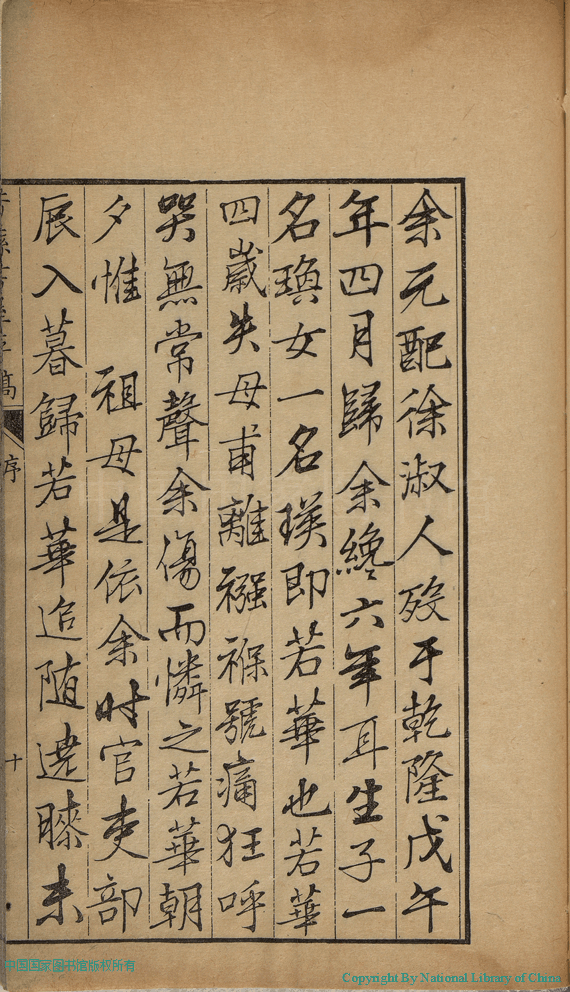 余元配徐淑人歿于乾隆戊午
年四月歸余纔六年耳生子一
名瑍女一名瑛即若華也若華
四歲失母甫離襁褓號痛狂呼
哭無常聲余傷而憐之若華朝
夕惟 祖母是依余时官吏部
辰入暮歸若華追随遶膝未
稿
序
十
中国国家图书馆版权所有
Copyright By National Library of China